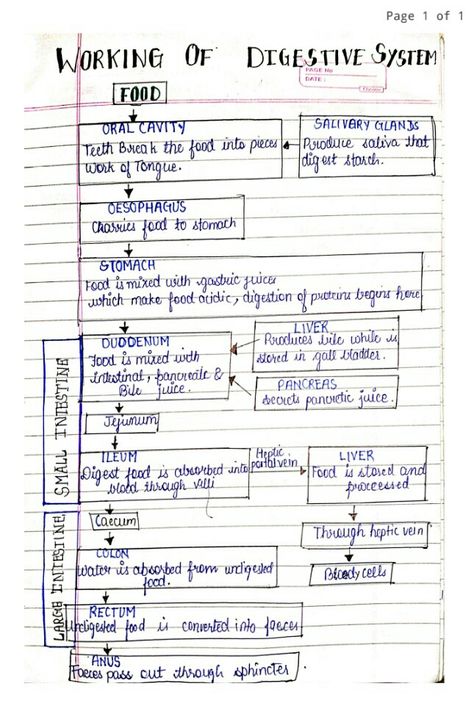 Page 1 of 1
WORKING OF DIGESTIVE SYSTEM
PAGE No
DATE:
FOOD
ORAL CAVITY
Teeth Break the food into pieces
Work of Tongue.
SALIVARY GLANDS
Produce saliva that
digest starch.
OESOPHAGUS
Charries food to stomach
STOMACH
Food is mixed with gastric juicer
which make food acidic, digestion of proteins begins here
SMALL INTESTINE
DUODENUM
Food is mixed with
intestinal, pancreatic &
Bile juice.
LIVER
Produces bile while is
stored in gall bladder.
PANCREAS
Secrets pancretic juice.
Jejunum
ILEUM
Digest food is absorbed into
blood through villi
Heptic
portal vein
LIVER
Food is stored and
proccessed
Through heptic vein
LARGE INTESTINE
Caecum
COLON
Water is absorbed from undigested
food.
RECTUM
Undigested food is converted into faeces
ANUS
Faeces pass out through sphincter.